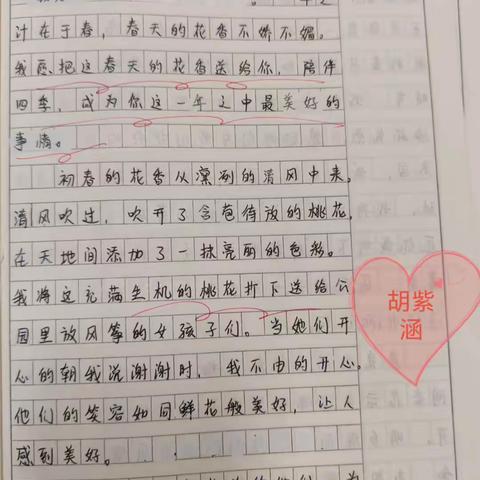 计在于春，春天的花香不娇不媚。
我愿把这春天的花香送给你，陪伴
四季，成为你这一年之中最美好的
事情。
初春的花香从凛冽的清风中来，
清风吹过，吹开了含苞待放的桃花，
在天地间添加了一抹亮丽的色彩。
我将这充满生机的桃花折下送给公
园里放风筝的女孩子们。当她们开
心的朝我说谢谢时，我不由的开心。
他们的笑容如同鲜花般美好，让人
感到美好。
胡紫
涵